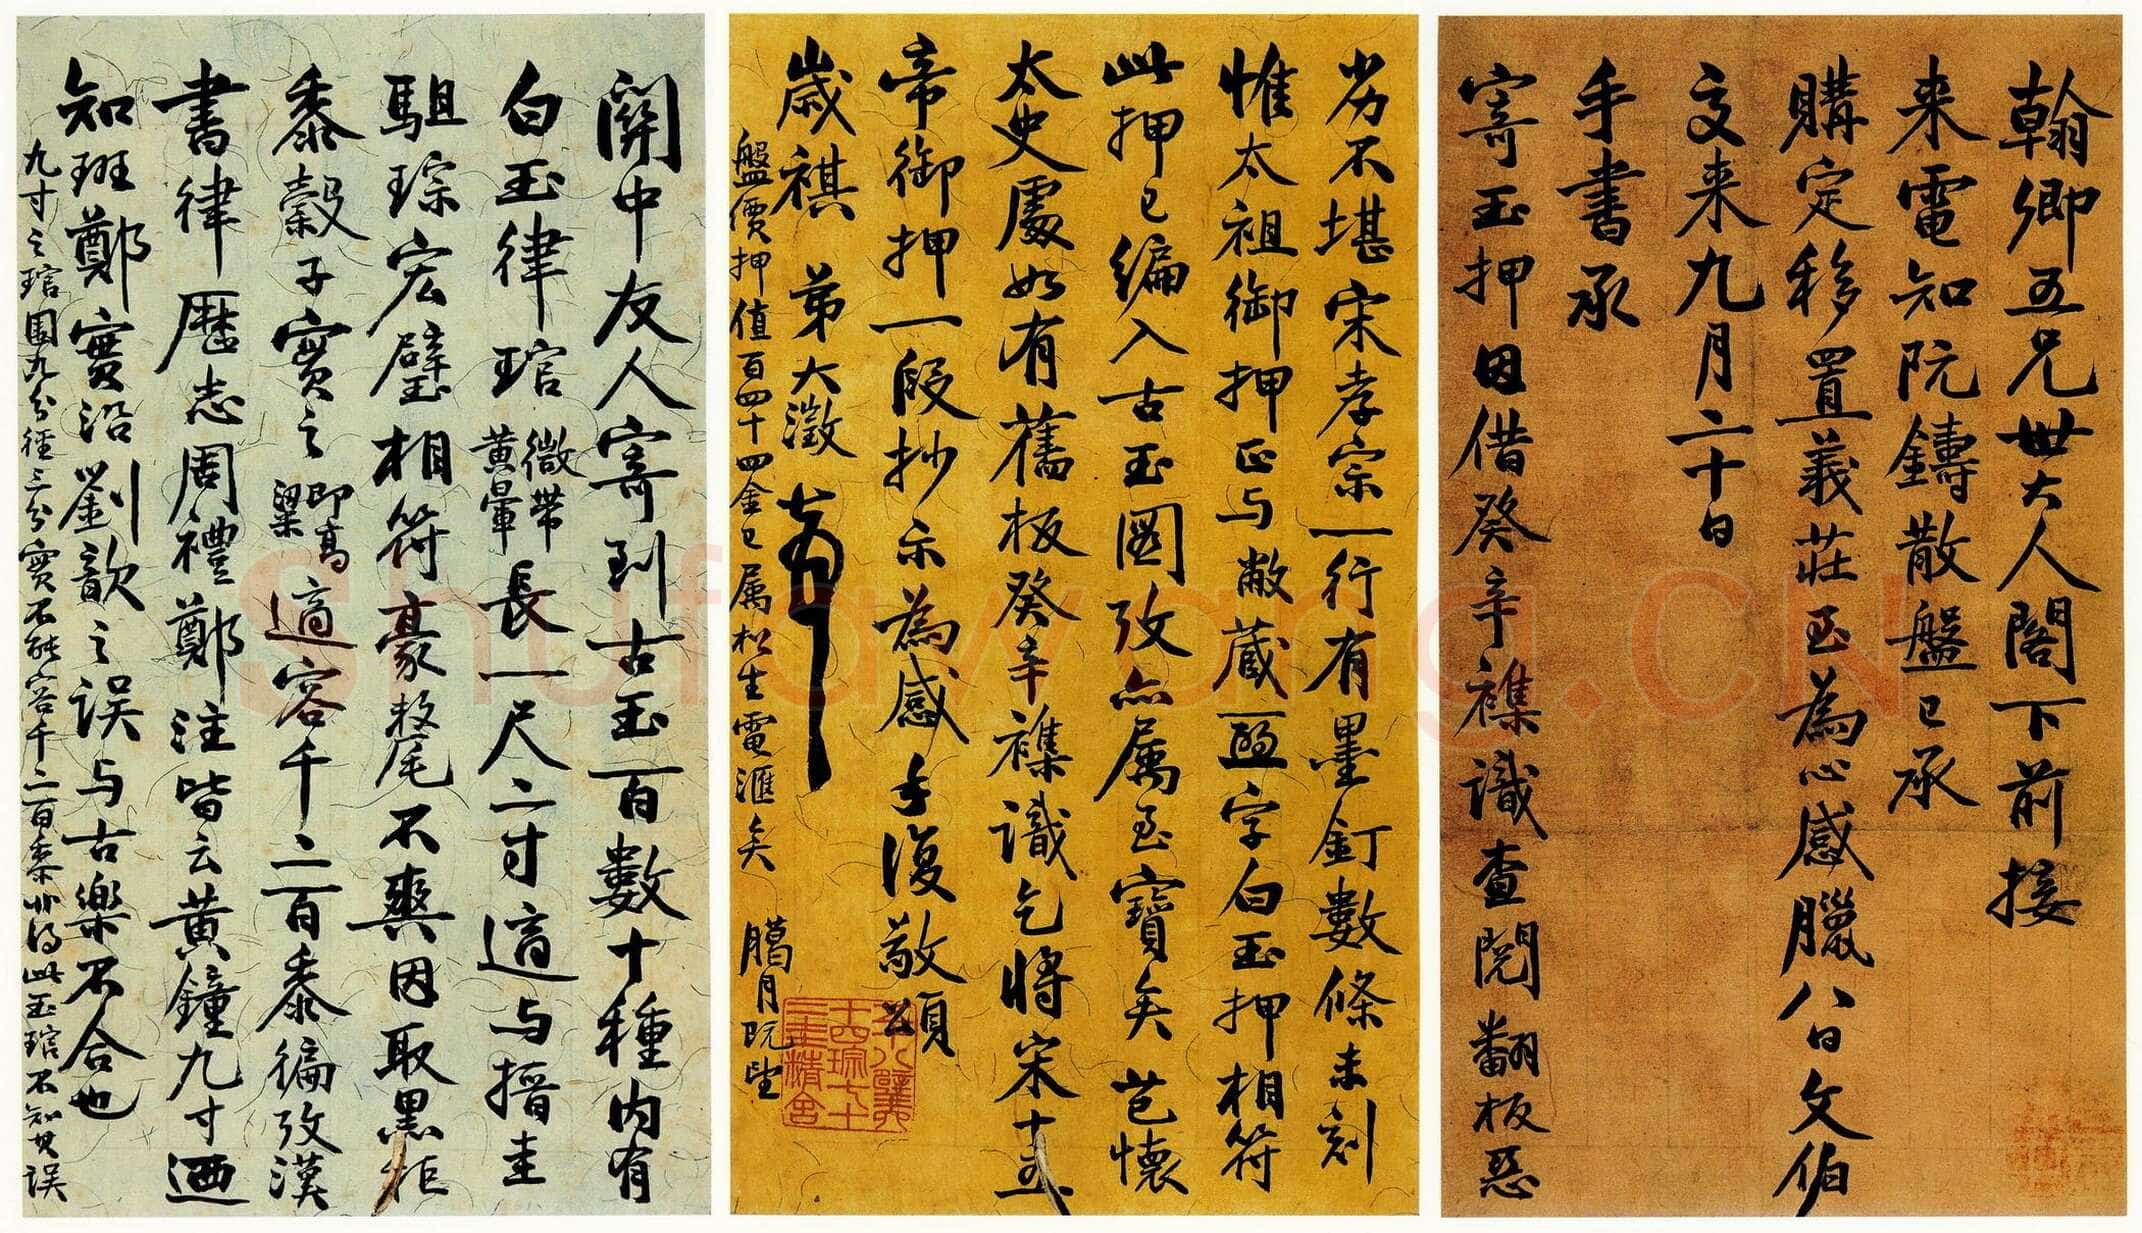 翰卿五兄世大人閣下前接
来電知阮鑄散盤已承
購定移置義莊至為心感臘八日文伯
交来九月二十日
手書承
寄玉押因借癸辛襍識查閱翻板惡
劣不堪宋孝宗一行有墨釘數條未刻
惟太祖御押正与敝蔵一字白玉押相符
此押已編入古玉圖攷亦属至寶矣芑懷
太史處如有舊板癸辛襍識乞將宋十五
帝御押一段抄示為感手復敬頌
歲祺 弟大澂
盤價押值百四十四金已属松生電滙矣 臈月既望
關中友人寄到古玉百數十種内有
白玉律琯微帶黄暈長一尺二寸適与搢圭
駔琮宏璧相符豪氂不爽因取黑秬
黍穀子實之即高粱適容千二百黍徧攷漢
書律厯志周禮鄭注皆云黄鐘九寸迺
知班鄭實沿劉歆之誤与古樂不合也
九寸之琯圍九分徑三分實不能容千二百黍非得此玉琯不知其誤
shufawang.CN